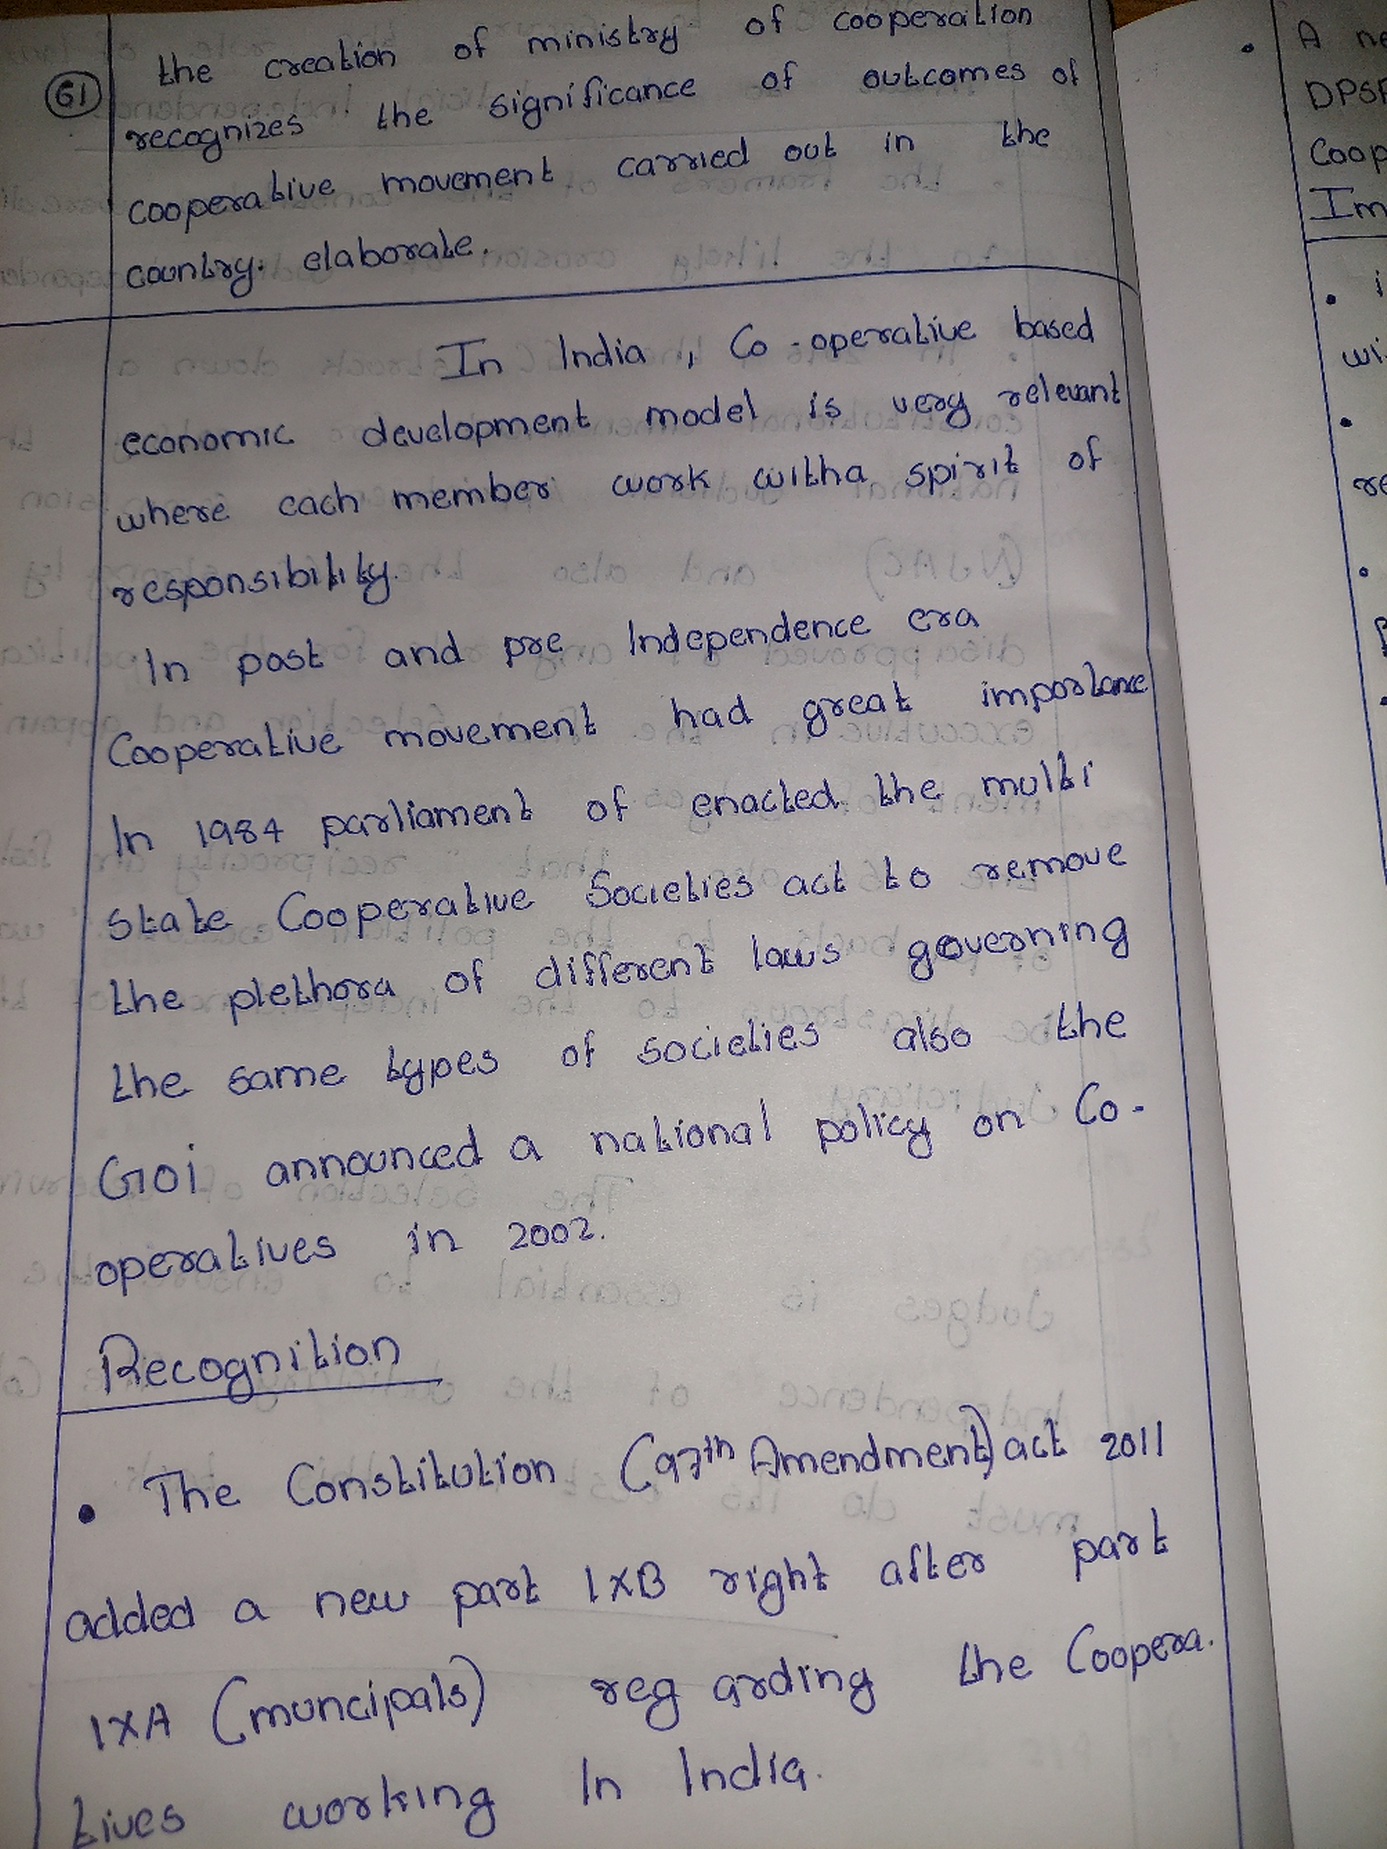 61
the creation of ministry of cooperation
recognizes the significance of outcomes of
cooperative movement carried out in the
country. elaborate.
In India, Co-operative based
economic development model is very relevant
where each member work witha spirit of
responsibility.
In post and pre Independence era
Cooperative movement had great importance
In 1984 parliament of enacted the multi
state Cooperative Societies act to remove
the plethora of different laws governing
the same types of societies also the
GOI announced a national policy on Co-
operatives in 2002.
Recognition
• The Constitution (97th Amendment) act 2011
added a new part IXB right after part
IXA (muncipals) regarding the Coopera-
tives working In India.
A
DPSP
Coop
Im